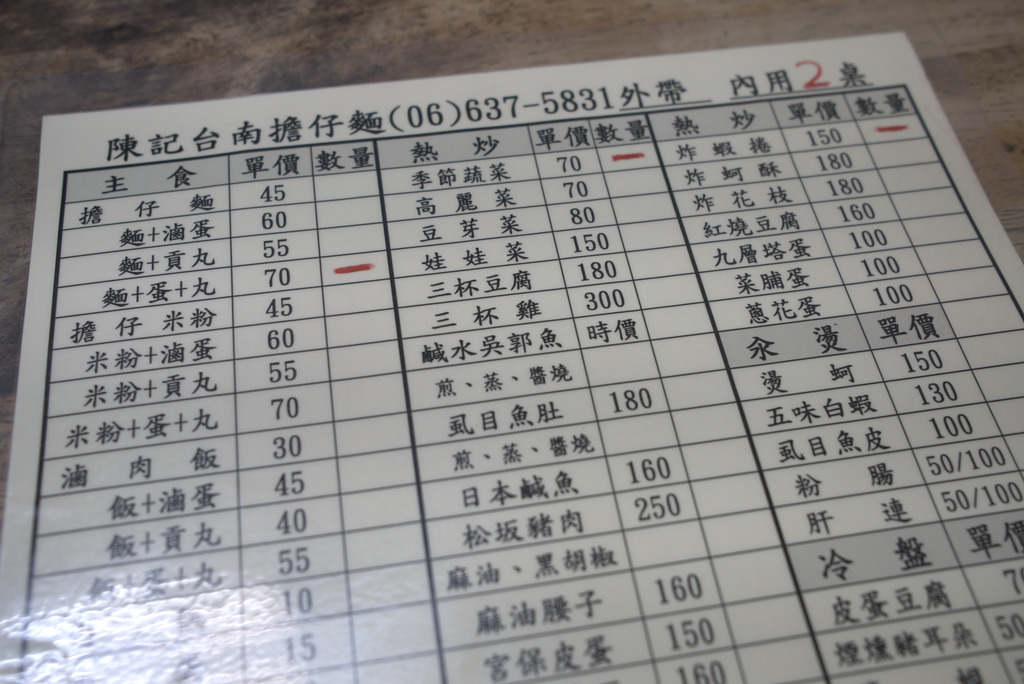 陳記台南擔仔麵(06)637-5831外帶 內用2桌
主食 單價 數量
擔仔麵 45
麵+滷蛋 60
麵+貢丸 55
麵+蛋+丸 70 一
擔仔米粉 45
米粉+滷蛋 60
米粉+貢丸 55
米粉+蛋+丸 70
滷肉飯 30
飯+滷蛋 45
飯+貢丸 40
飯+蛋+丸 55
10
15
熱炒 單價 數量
季節蔬菜 70 一
高麗菜 70
豆芽菜 80
娃娃菜 150
三杯豆腐 180
三杯雞 300
鹹水吳郭魚 時價
煎、蒸、醬燒
虱目魚肚 180
煎、蒸、醬燒
日本鹹魚 160
松坂豬肉 250
麻油、黑胡椒
麻油腰子 160
宮保皮蛋 150
160
熱炒 單價 數量
炸蝦捲 150 一
炸蚵酥 180
炸花枝 180
紅燒豆腐 160
九層塔蛋 100
菜脯蛋 100
蔥花蛋 100
汆燙 單價
燙蚵 150
五味白蝦 130
虱目魚皮 100
粉腸 50/100
肝連 50/100
冷盤 單價
皮蛋豆腐
煙燻豬耳朵